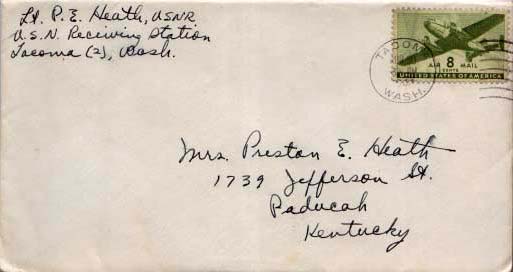 Lt. P. E. Heath, USNR
U.S.N. Receiving Station
Tacoma (2), Wash.
TACOMA
WASH.
AIR 8 MAIL
CENTS
UNITED STATES OF AMERICA
Mrs. Preston E. Heath
1739 Jefferson St.
Paducah
Kentucky